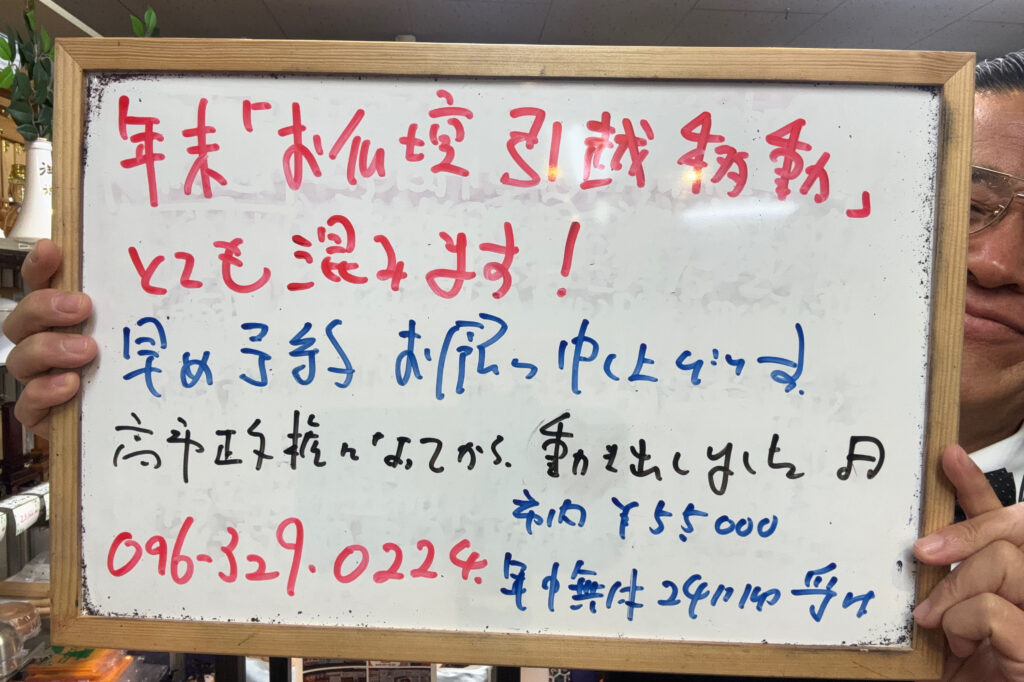 年末「お仏壇引越移動」
とても混みます!
早め予約 お願い申し上げます
高市政権になってから、動き出しました
市内 ¥55000
096-329-0224
年中無休 24 受け